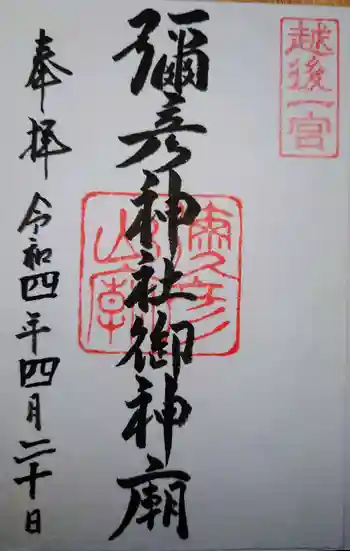 越後一宮
彌彦神社御神廟
奉拝
令和四年四月二十日